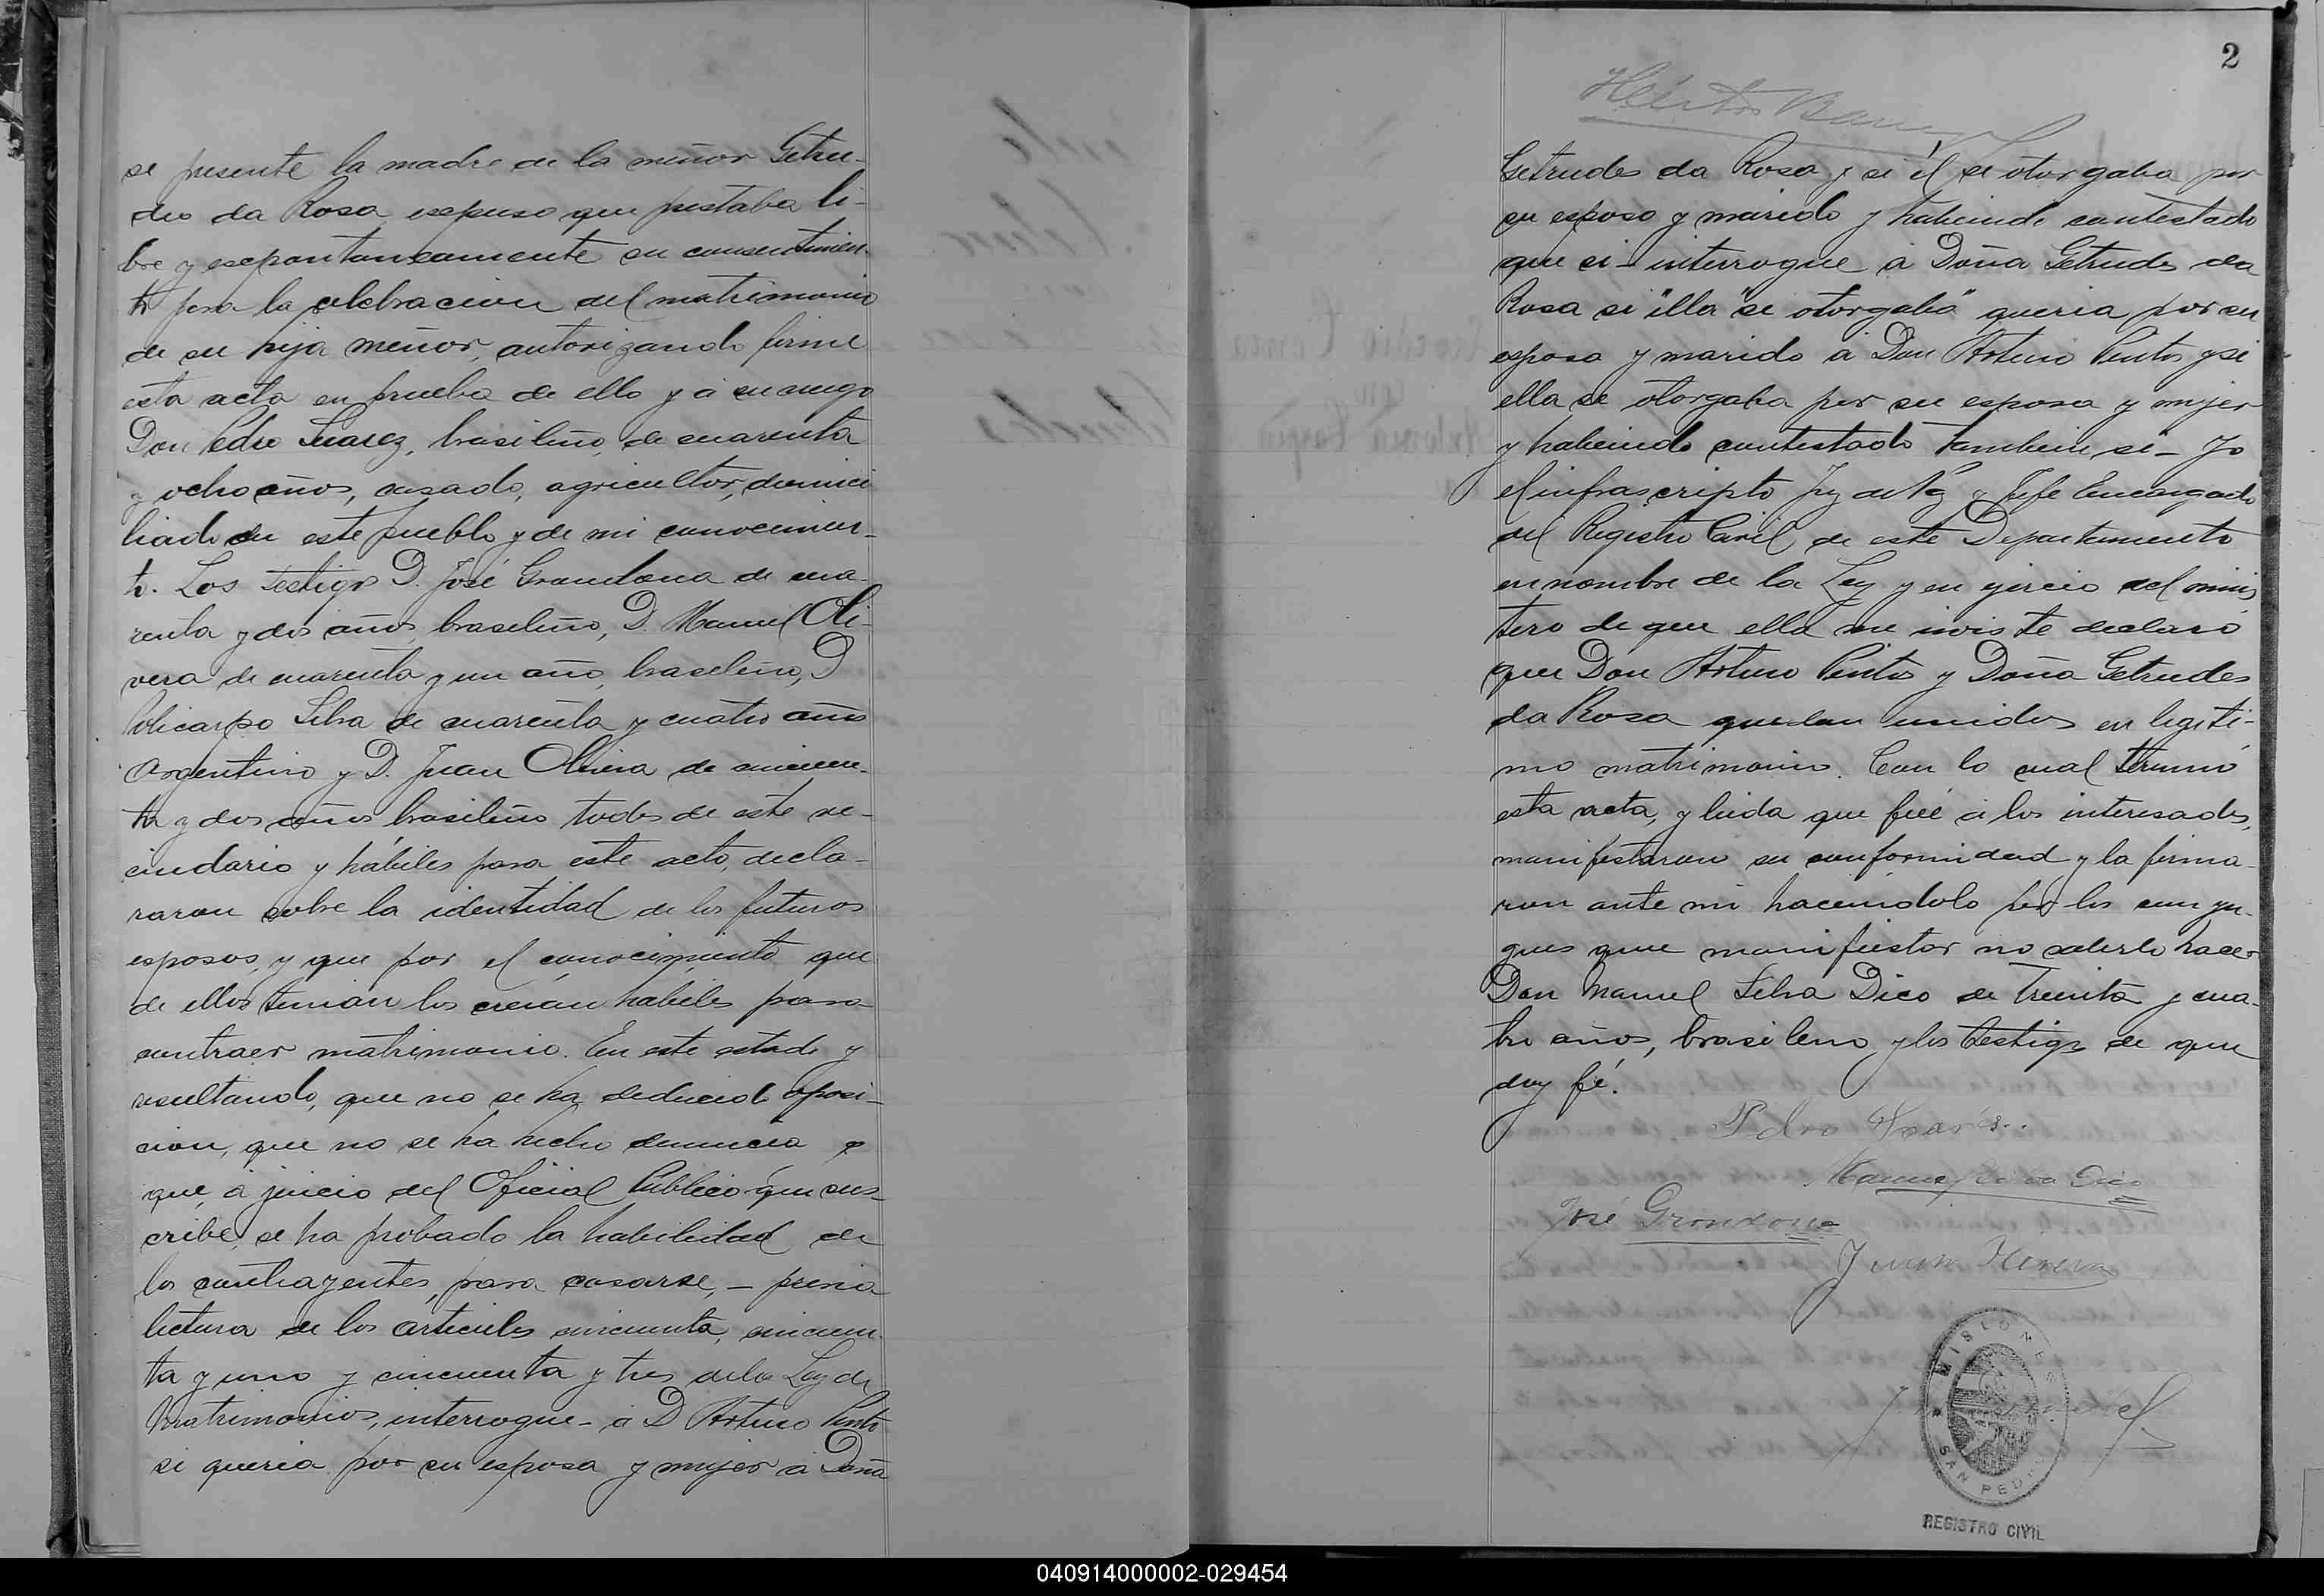 se presente la madre de la meñor Getru-
des da Rosa espuso que prestaba li-
bre y espontaneamente su consentimien-
to para la celebracion del matrimonio
de su hija meñor, autorizando firme
esta acta en prueba de ello y á su ruego
Don Pedro Suarez, brasileño, de cuarenta
y ocho años, casado, agricultor, domici
liado en este pueblo y de mi conocimien-
to. Los testigos D. José Grandona de cua-
renta y dos años brasileño, D. Manuel Oli-
vera de cuarenta y un año, brasileño, D
Policarpo Silva de cuarenta y cuatro años
Argentino y D. Juan Olivera de cincuen-
ta y dos años brasileño todos de este ve-
cindario y hábiles para este acto, decla-
raron sobre la identidad de los futuros
esposos, y que por el conocimiento que
de ellos tenian los creian habiles para
contraer matrimonio. En este estado y
resultando, que no se ha deducido oposi-
cion, que no se ha hecho denuncia y
que, á juicio del Oficial Publico que sus-
cribe, se ha probado la habilidad de
los contrayentes, para casarse, - previa
lectura de los articulos cincuenta, cincuen-
ta y uno y cincuenta y tres de la Ley de
Matrimonios, interrogue - á D Arturo Pinto
si queria por su esposa y mujer á Doña
2
Getrudes da Rosa y si él se otorgaba por
su esposo y marido y habiendo contestado
que si - interrogue á Doña Getrudes da
Rosa si "ella "se otorgaba" queria por su
esposo y marido á Don Arturo Pinto y si
ella se otorgaba por su esposa y mujer
y habiendo contestado tambien si - Yo
el infrascripto Juez de Paz y Jefe Encargado
del Registro Civil de este Departamento
en nombre de la Ley y en ejercio del minis
tero de que ella me inviste declaró
que Don Arturo Pinto y Doña Getrudes
da Rosa quedan unidos en legiti-
mo matrimonio. Con lo cual terminó
esta acta, y leida que fué á los interesados,
manifestaron su conformidad y la firma-
ron ante mi haciendolo por los conyu-
gues que manifiestar no saberlo hacer
Don Manuel Silva Dico de treinta y cua-
tro años, brasileno y los testigos de que
doy fé.
Pdro
Manuel Silva Dico
José Grondona
Juan
MISIONES
SAN PEDRO
REGISTRO CIVIL
040914000002-029454